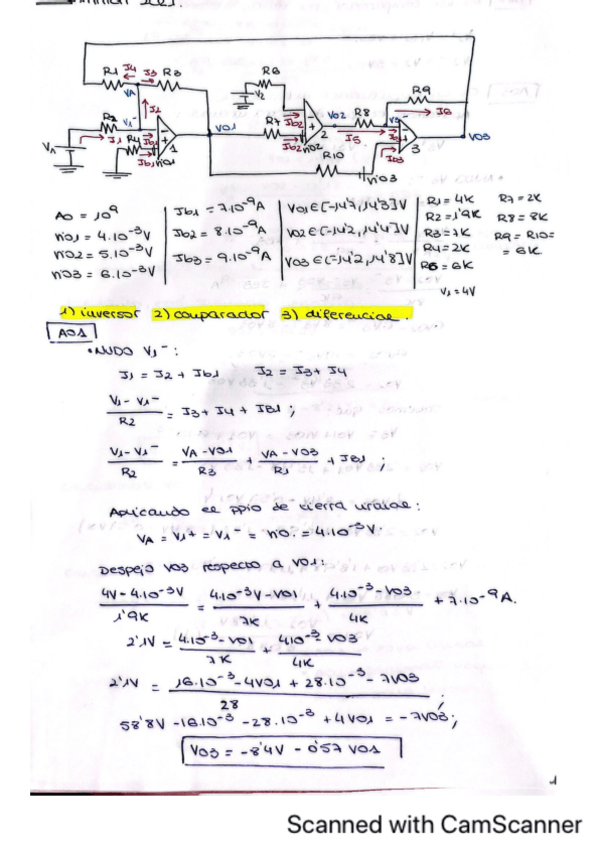 2021.
R1 J4 J3 R3
VA
R2 V1- J2
J1 R4 Jb1 n01 1
V1
V01
R6
V2
R7 Jb2
Jb2 n02 2
V02 R8
J5
R9
J6
V3
Jb3 3
V03
R10
n03
A0 = 10⁹
n01 = 4.10⁻³V
n02 = 5.10⁻³V
n03 = 6.10⁻³V
Jb1 = 7.10⁻⁹A
Jb2 = 8.10⁻⁹A
Jb3 = 9.10⁻⁹A
V01 ∈ [-14'2, 14'3] V
V02 ∈ [-14'2, 14'4] V
V03 ∈ [-14'2, 14'8] V
R1 = 4K R7 = 2K
R2 = 1'9K R8 = 8K
R3 = 7K R9 = R10 =
R4 = 2K = 6K
R6 = 6K
V1 = 4V
1) inversor 2) comparador 3) diferencial.
A01
• NUDO V1⁻:
J1 = J2 + Jb1 J2 = J3 + J4
V1 - V1⁻ / R2 = J3 + J4 + JB1 ;
V1 - V1⁻ / R2 = VA - V01 / R3 + VA - V03 / R1 + JB1 ;
Aplicando el ppio de tierra virtual:
VA = V1+ = V1⁻ = n0. = 4.10⁻³V.
Despejo V03 respecto a V01:
4V - 4.10⁻³V / 1'9K = 4.10⁻³V - V01 / 7K + 4.10⁻³ - V03 / 4K + 7.10⁻⁹A.
2'1V = 4.10⁻³ - V01 / 7K + 4.10⁻³ V03 / 4K
2'1V = 16.10⁻³ - 4V01 + 28.10⁻³ - 7V03 / 28 ;
58'8V - 16.10⁻³ - 28.10⁻³ + 4V01 = -7V03 ;
V03 = -8'4V - 0'57 V01
1
Scanned with CamScanner